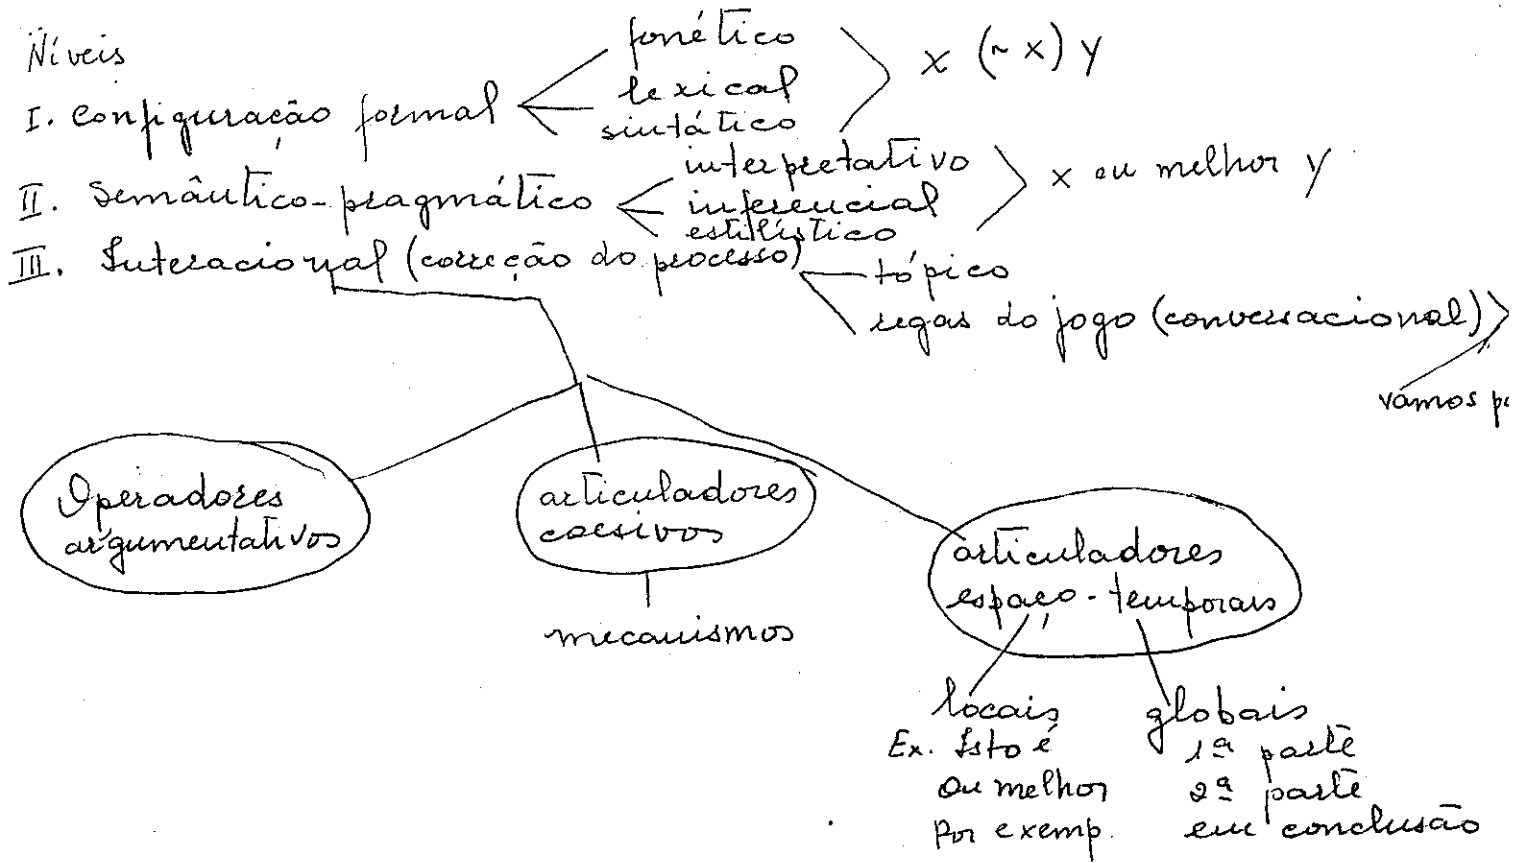 Níveis
I. Configuração formal
fonético
lexical
sintático
x (~x) y
II. Semântico-pragmático
interpretativo
inferencial
estilístico
x ou melhor y
III. Interacional (correção do processo)
tópico
regas do jogo (conversacional)
vamos
Operadores
argumentativos
articuladores
coesivos
mecanismos
articuladores
espaço-temporais
locais
Ex. Isto é
Ou melhor
Por exemp.
globais
1ª parte
2ª parte
em conclusão